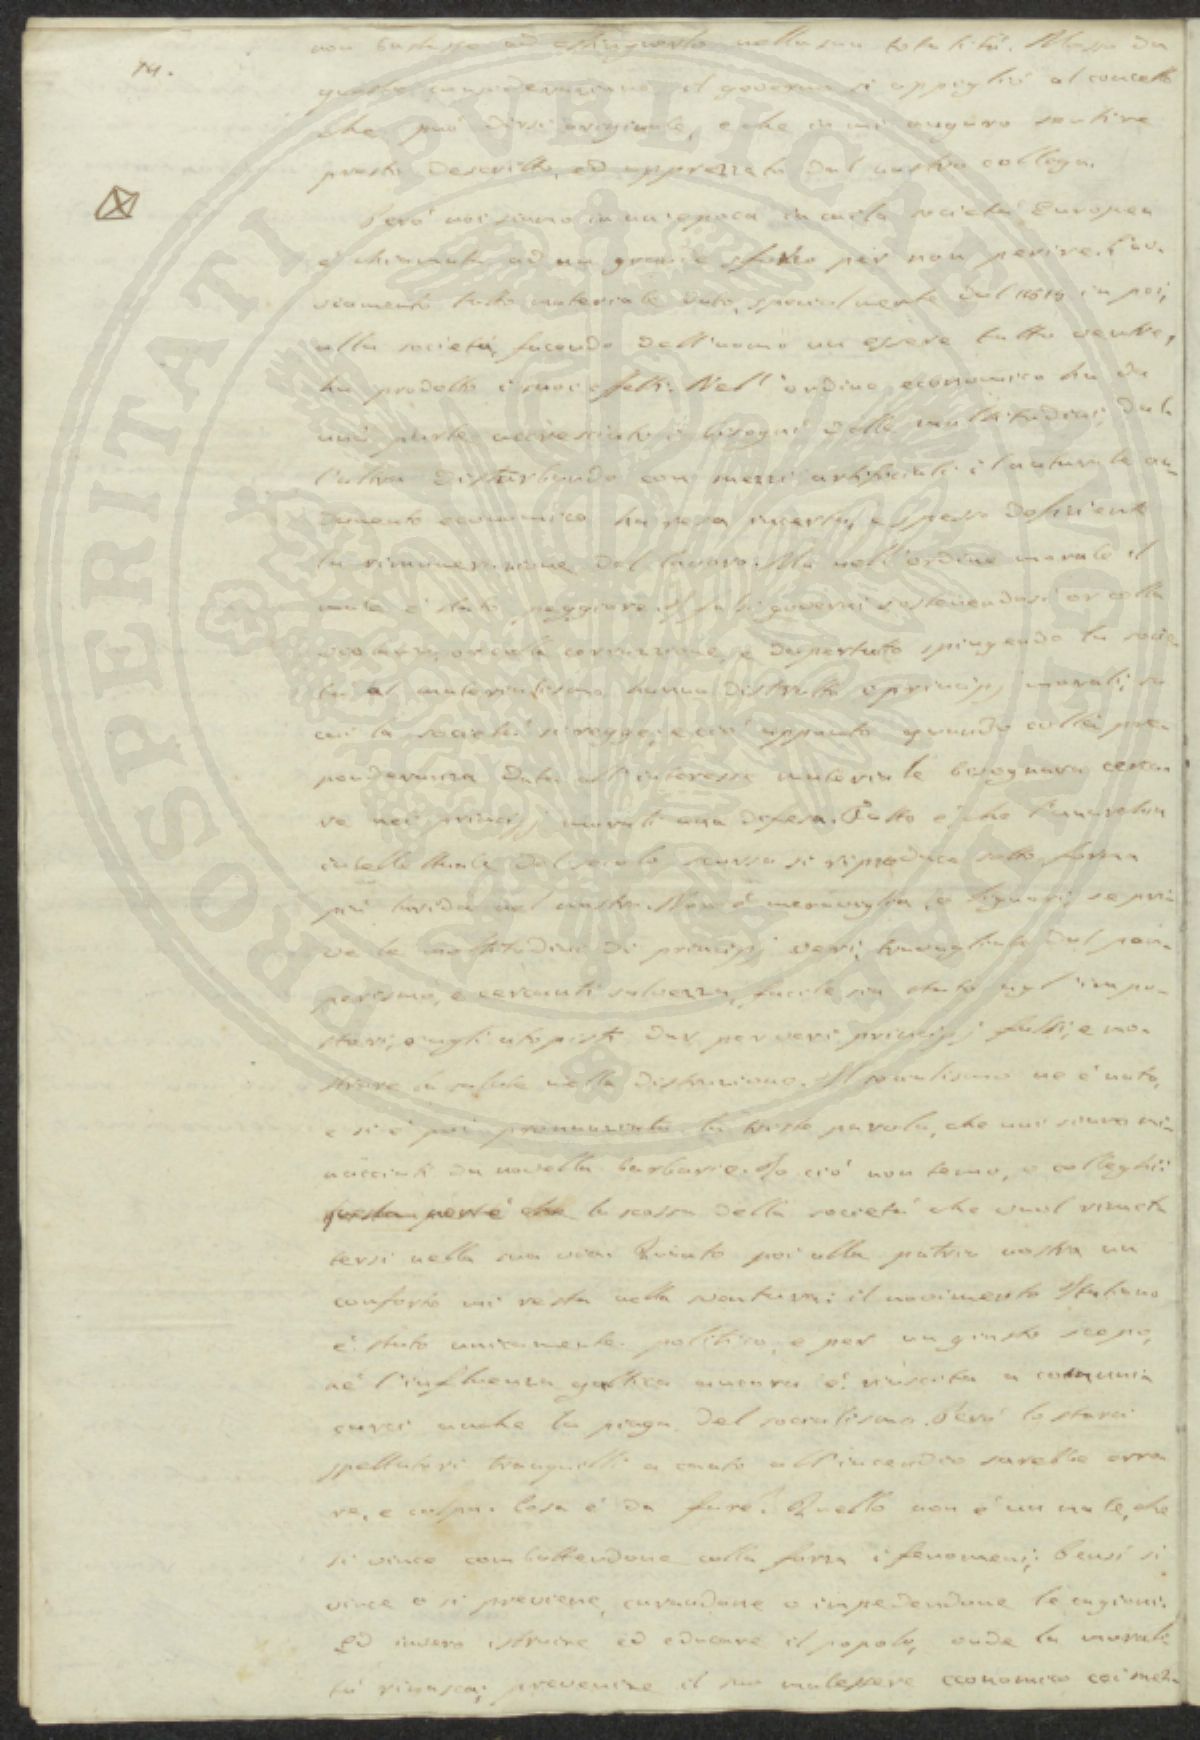 14.
non bastasse ad estinguerlo nella sua totalità. Mosso da
queste considerazione il governo si appigliò al concetto
che può dirsi originale, e che io mi auguro sentire
presto descritto, ed apprezzato dal nostro collega.
Però noi siamo in un'epoca in cui la società Europea
è chiamata ad un grande sforzo per non perire. L'av-
viamento tutto materiale dato, specialmente dal 1819 in poi,
alla società, facendo dell'uomo un essere tutto ventre,
ha prodotto i suoi effetti. Nell'ordine economico ha da
una parte accresciuto i bisogni delle moltitudini; dal-
l'altra disturbando con mezzi artificiali il naturale an-
damento economico ha resa incerta, e spesso deficiente
la rimunerazione del lavoro. Ma nell'ordine morale il
male è stato peggiore. I governi sostenendosi or colla
or colla corruzione, e dapertutto spingendo la socie-
tà al materialismo hanno distrutto i principj morali, su
cui la società si regge, e ciò appunto quando colla pre-
ponderanza data all'interesse materiale bisognava cerca-
re nei principj morali una difesa. Fatto è che l'anarchia
intellettuale del secolo scorso si riproduce sotto forma
più lurida nel nostro. Non è meraviglia, o Signori, se pri-
ve le moltitudini di principj veri, travagliate dal pau-
perismo, e cercanti salvezza, facile sia stato agl'impo-
stori, o agli utopisti dar per veri principj falsi, e mo-
strare la salute nella distruzione. Il socialismo ne è nato,
e si è poi pronunziata la triste parola, che noi siamo mi-
nacciati da novella barbarie. Io ciò non temo, o colleghi:
questa è la scossa della società che vuol rimet-
tersi nella sua via. Quanto poi alla patria nostra un
conforto mi resta nella sventura: il movimento Italiano
è stato unicamente politico, e per un giusto scopo,
nè l'influenza gallica ancora è riuscita a comuni-
carci anche la piaga del socialismo. Però lo starci
spettatori tranquilli a canto all'incendio sarebbe erro-
re, e colpa. Cosa è da fare? Quello non è un male, che
si vince combattendone colla forza i fenomeni; bensì si
vince o si previene, curandone o impedendone le cagioni.
Ed invero istruire ed educare il popolo, onde la morali-
tà rinasca; prevenire il suo malessere economico coi mez-